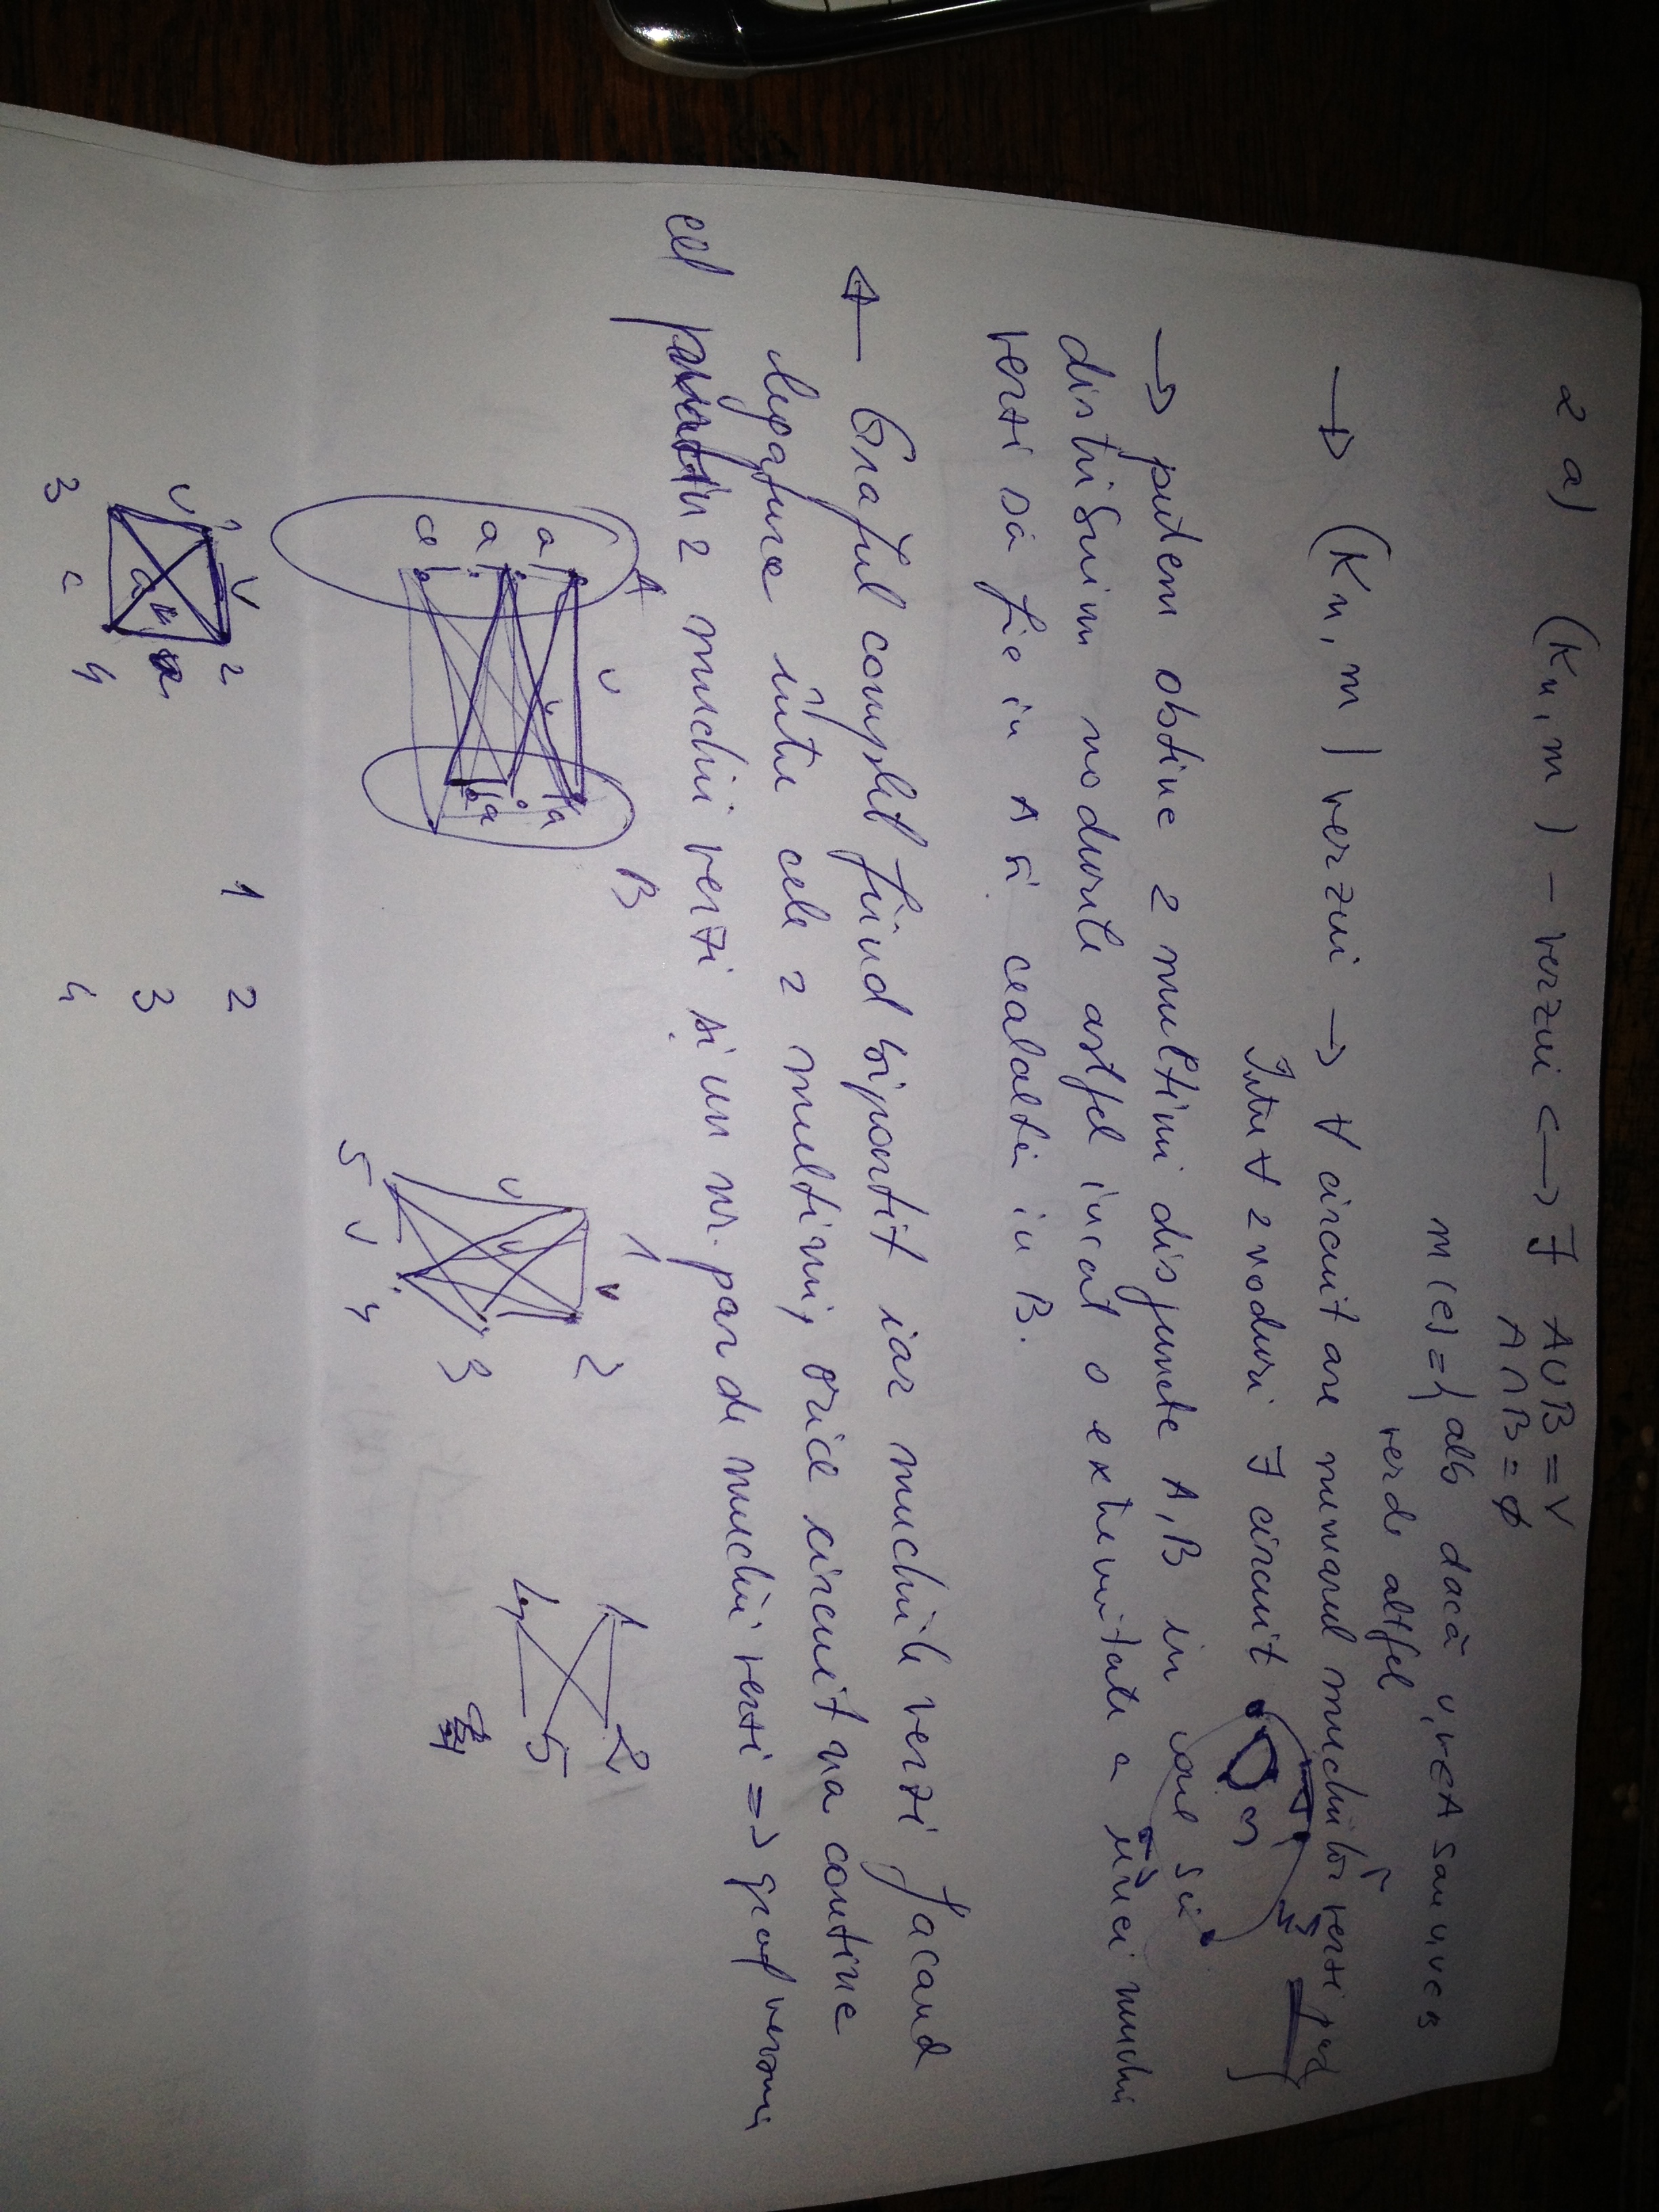 2 a) (Kn, m) - verzui <-> ∃ A∪B = V
A∩B = ∅
m(e) = { alb dacă u,v∈A sau u,v∈B
verde altfel
→ (Kn, m) verzui → ∀ circuit are numarul muchiilor verzi par
Intre ∀ 2 noduri ∃ circuit
→ putem obtine 2 multimi disjuncte A, B in care să
distribuim nodurile astfel incat o extremitate a unei muchii
verzi să fie in A si cealalta in B.
← Graful complet fiind bipartit iar muchiile verzi facand
legatura intre cele 2 multimi, orice circuit va contine
cel putin 2 muchii verzi si un nr. par de muchii verzi => graf verzui
A v B
a a
a a
1 2
3 4
v v
a
1 2
3
4
1 v 2
v 3
5 v 4
1 2
4 5